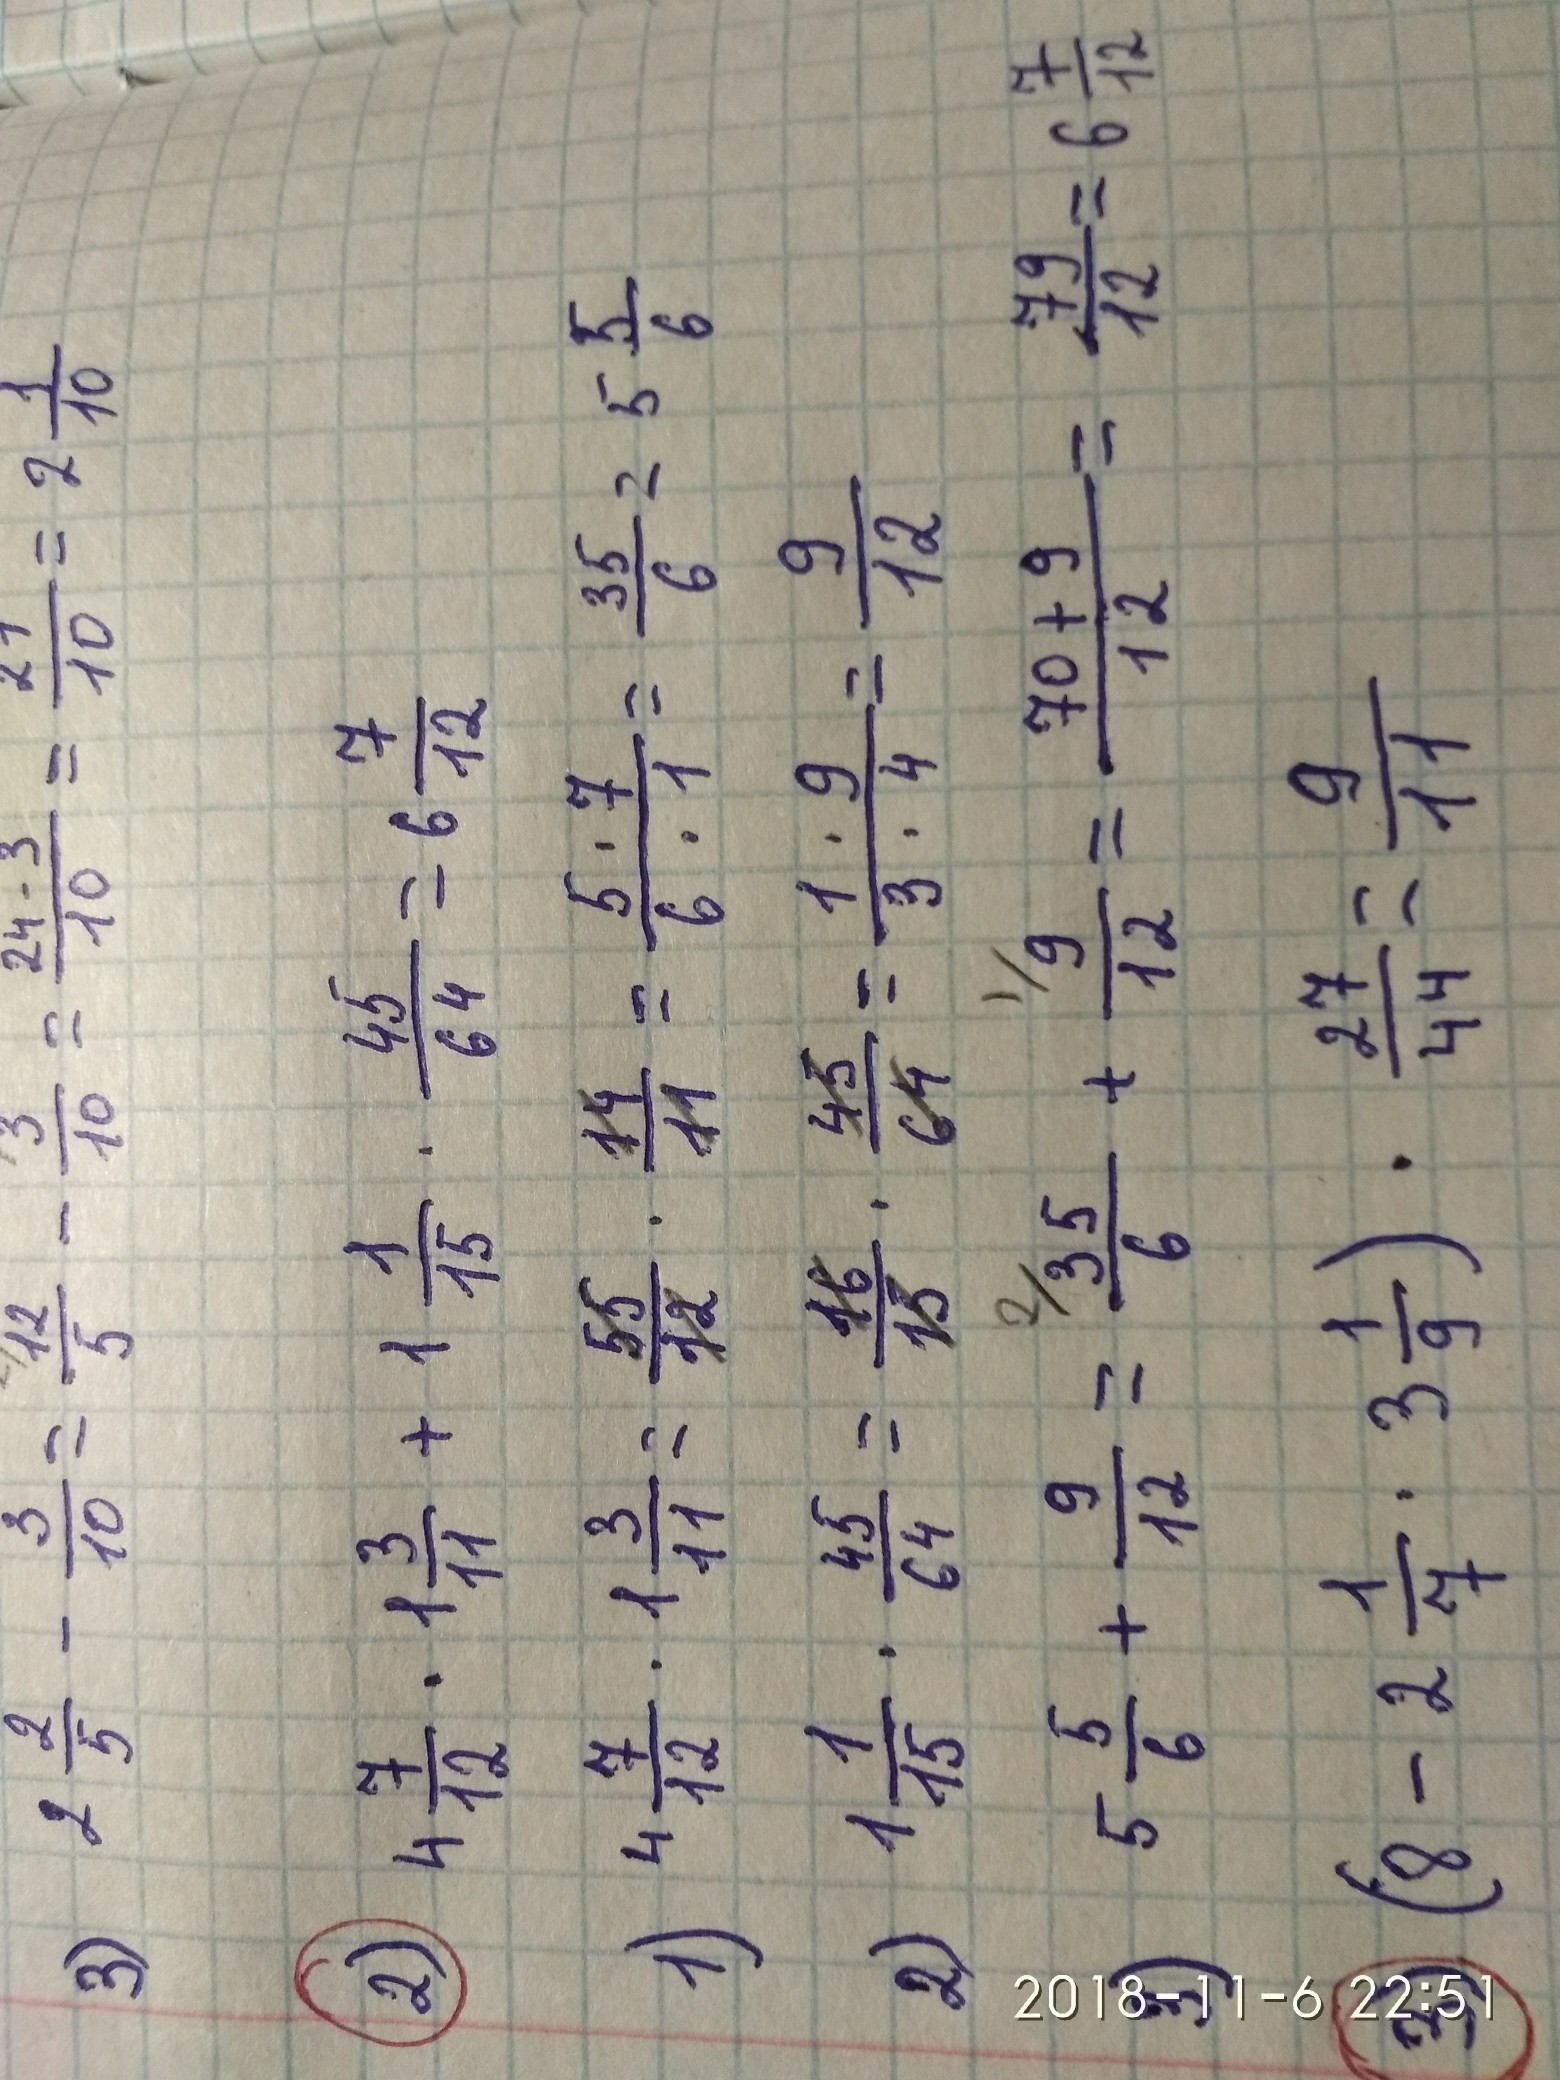 3) 2 2/5 - 3/10 = 2/ 12/5 - 3/10 = 24-3/10 = 21/10 = 2 1/10
2) 4 7/12 · 1 3/11 + 1 1/15 · 45/64 = 6 7/12
1) 4 7/12 · 1 3/11 = 55/12 · 14/11 = 5·7/6·1 = 35/6 = 5 5/6
2) 1 1/15 · 45/64 = 16/15 · 45/64 = 1·9/3·4 = 9/12
3) 5 5/6 + 9/12 = 2/ 35/6 + 1/ 9/12 = 70+9/12 = 79/12 = 6 7/12
3) (8 - 2 1/7 · 3 1/9) · 27/44 = 9/11
2018-11-6 22:51